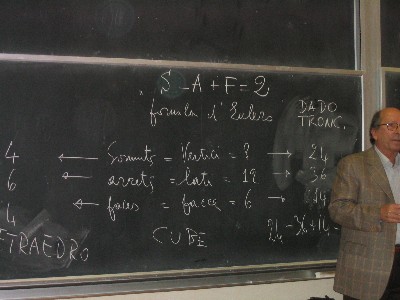 S - A + F = 2
formula d'Eulero
DADO
TRONC.
4 ← Sommets = Vertici = 8 → 24
6 ← arrets = lati = 12 → 36
4 ← faces = facce = 6 → 14
ETRAEDRO
CUBE
24 - 36 + 14 =